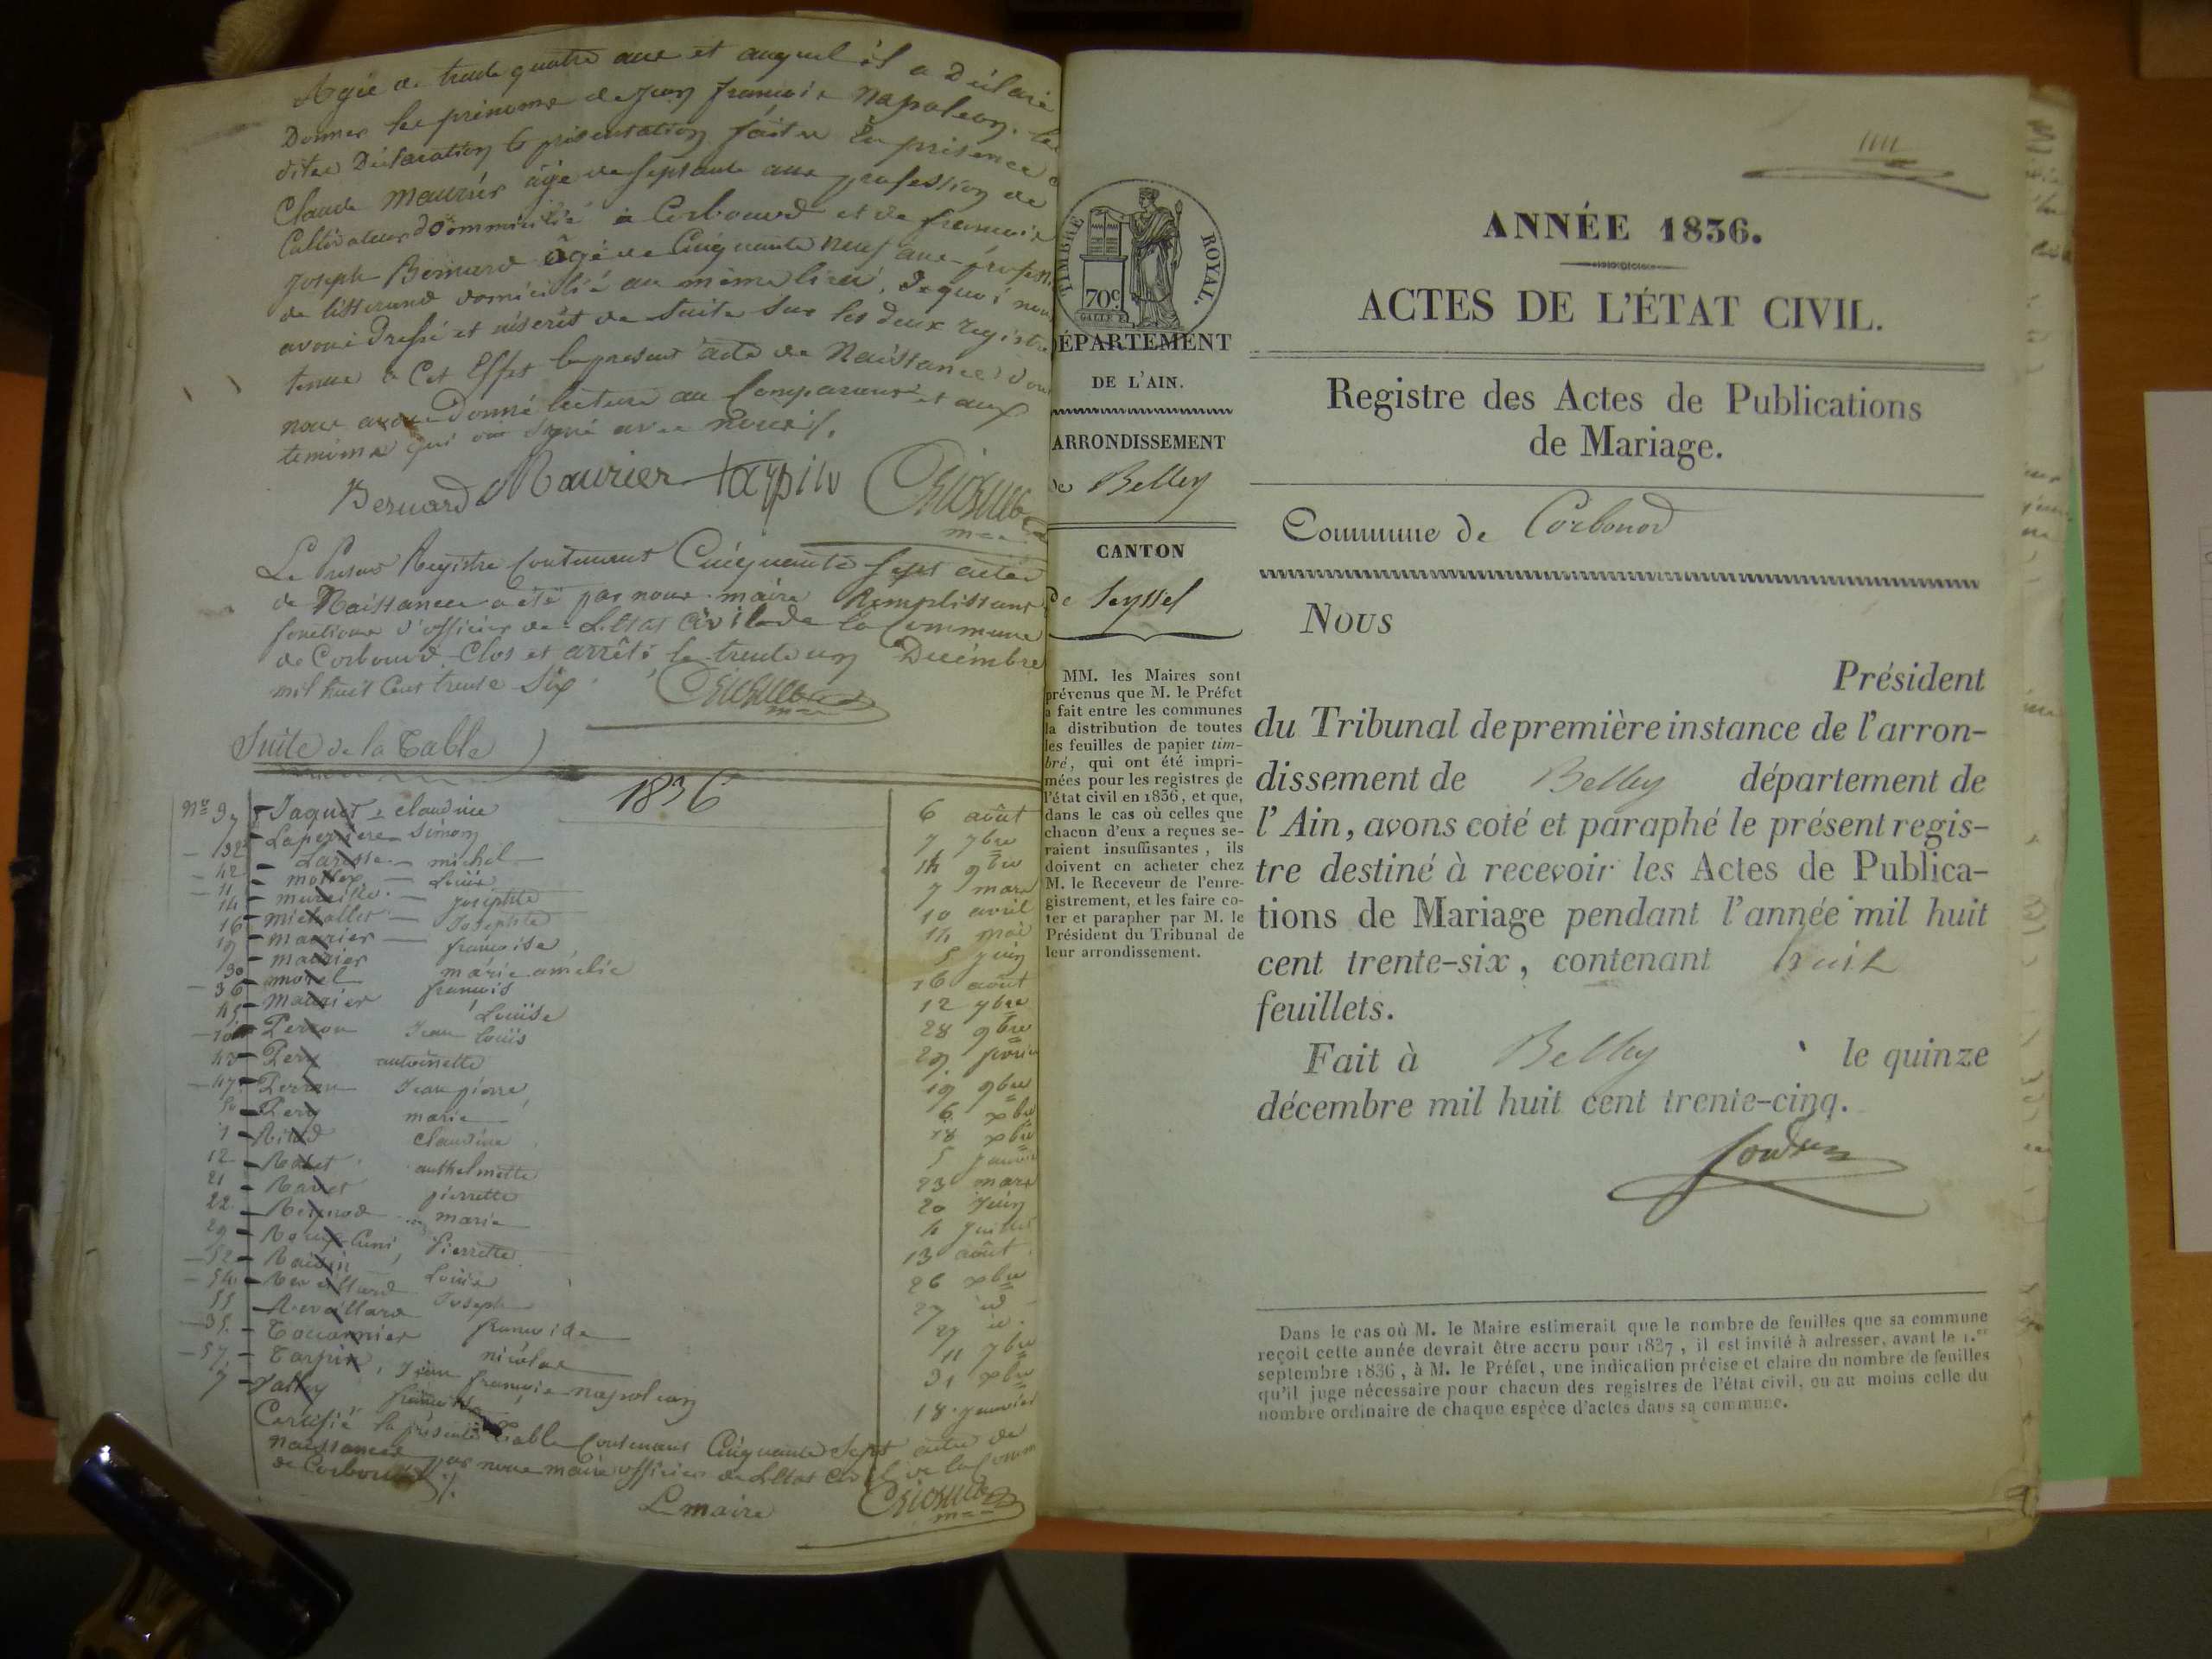 Agée de trente quatre ans et auquel il a Déclaré
Donner les prénoms de jean francois Napoleon. les
dites Déclaration & présentation faites En présence de
Claude Maurier âgé de septante ans profession de
Cultivateur domicilié à Corbonod et de francois
Joseph Bernard âgé de Cinquante neuf ans profession
de tisserand domicilié au même lieu, De quoi nous
avons Dressé et inscrit de suite sur les deux registres
tenus à Cet Effet le présent acte de Naissance Dont
nous avons Donné lecture au Comparant et aux
temoins qui ont signé avec nous
Bernard Maurier tarpin
Le Present Registre Contenant Cinquante sept actes
de Naissance a été par nous maire Remplissant
fonctions d'officier de L'Etat Civil de la Commune
de Corbonod Clos et arrêté le trente un Decémbre
mil huit Cent trente Six
Suite de la Table
1836
Jaquet claudine 6 août
Laperriere Simon 7 7bre
32 Laresse michel 14 9bre
42 mottex Louis 7 mars
11 Josephte 10 avril
14 michallet Josephte 14 mai
16 maurier francoise 5 juin
19 maurier marie amélie 16 août
30 morel francois 12 7bre
36 maurier Louise 28 9bre
45 Perron Jean Louis
Pery antoinette 19 9bre
47 Perron Jean pierre 6 xbre
50 Pery marie 18 xbre
1 claudine 5 janvier
12 anthelmette 23 mars
21 pierrette 20 juin
22 marie 4 juillet
29 Pierrette 13 août
52 Raisin Louise 26 xbre
54 Revillard Joseph 27 id
55 Revillard francoise 27 id
35 Tournier nicolas 11 7bre
57 Tarpin, Jean francois napoleon 31 xbre
francoise 18 janvier
Certifié la présente Table Contenant Cinquante sept actes de
naissances par nous maire officier de L'Etat Civil de la Commune
de Corbonod
Le maire
TIMBRE ROYAL.
70c
GALLE F.
DÉPARTEMENT
DE L'AIN.
ARRONDISSEMENT
de Belley
CANTON
De Seyssel
MM. les Maires sont
prévenus que M. le Préfet
a fait entre les communes
la distribution de toutes
les feuilles de papier tim-
bré, qui ont été impri-
mées pour les registres de
l'état civil en 1836, et que,
dans le cas où celles que
chacun d'eux a reçues se-
raient insuffisantes, ils
doivent en acheter chez
M. le Receveur de l'enre-
gistrement, et les faire co-
ter et parapher par M. le
Président du Tribunal de
leur arrondissement.
ANNÉE 1836.
ACTES DE L'ÉTAT CIVIL.
Registre des Actes de Publications
de Mariage.
Commune de Corbonod
Nous
Président
du Tribunal de première instance de l'arron-
dissement de Belley département de
l'Ain, avons coté et paraphé le présent regis-
tre destiné à recevoir les Actes de Publica-
tions de Mariage pendant l'année mil huit
cent trente-six, contenant huit
feuillets.
Fait à Belley le quinze
décembre mil huit cent trente-cinq.
Dans le cas où M. le Maire estimerait que le nombre de feuilles que sa commune
reçoit cette année devrait être accru pour 1837, il est invité à adresser, avant le 1.er
septembre 1836, à M. le Préfet, une indication précise et claire du nombre de feuilles
qu'il juge nécessaire pour chacun des registres de l'état civil, ou au moins celle du
nombre ordinaire de chaque espèce d'actes dans sa commune.